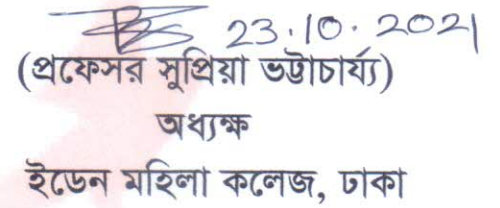 23.10.2021
(প্রফেসর সুপ্রিয়া ভট্টাচার্য্য)
অধ্যক্ষ
ইডেন মহিলা কলেজ, ঢাকা